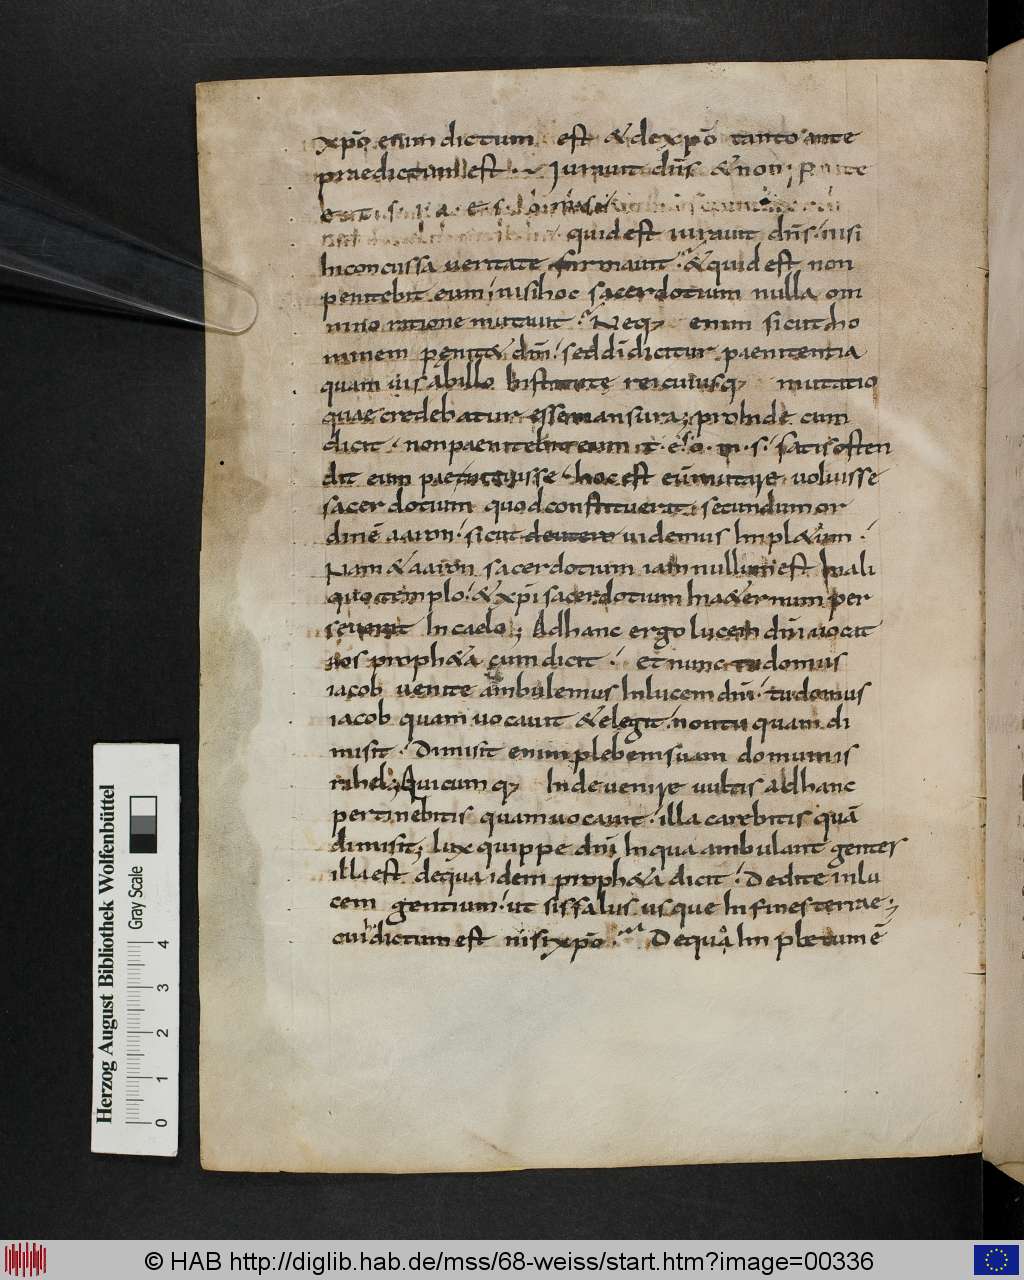 xp̄o enim dictum est & de xp̄o tanto ante
praedictum est · Iuravit dn̄s & non
quid est iuravit dn̄s · nisi
Inconcussa veritate firmavit · & quid est non
penitebit eum / nisi hoc sacerdotium nulla om
nino ratione mutavit · Neq; enim sicut ho
minem penit& dm̄ · sed dī dicitur paenitentia
quamvis ab illo rei cuiusq; mutatio
quae credebatur esse mansura; proinde cum
dicit · non paenitebit eum t · e · s · o · m · s · satis osten
dit eum paenituisse · hoc est eū mutare voluisse
sacerdotium quod constituerat secundum or
dinē aaron · sicut de utero videmus Impl&um ·
Nam & aaron sacerdotium iam nullum est In ali
quo templo · & xp̄i sacerdotium In a&ernum per
severat In caelo; Ad hanc ergo lucem dn̄i vocat
nos proph&a cum dicit · et nunc tu domus
iacob venite ambulemus In lucem dn̄i · tu domus
iacob quam vocavit & elegit · non tu quam di
misit · Dimisit enim plebem suam domum is
rahel; Quicumq; Inde venire vultis ad hanc
pertinebitis quam vocavit · illa carebitis quā
dimisit; lux quippe dn̄i In qua ambulant gentes
illa est de qua idem proph&a dicit · Dedi te in lu
cem gentium · ut sis salus usque In fines terrae ·;
cui dictum est nisi xp̄o · De quo Impletum ē
Herzog August Bibliothek Wolfenbüttel
Gray Scale
0 1 2 3 4
© HAB http://diglib.hab.de/mss/68-weiss/start.htm?image=00336